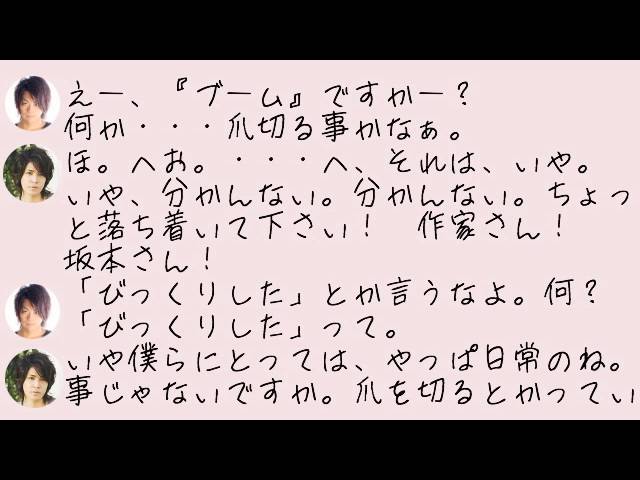 えー、『ブーム』ですかー？
何か・・・爪切る事かなぁ。
ほ。へお。・・・へ、それは、いや。
いや、分かんない。分かんない。ちょっ
と落ち着いて下さい！　作家さん！
坂本さん！
「びっくりした」とか言うなよ。何？
「びっくりした」って。
いや僕らにとっては、やっぱ日常のね。
事じゃないですか。爪を切るとかってい